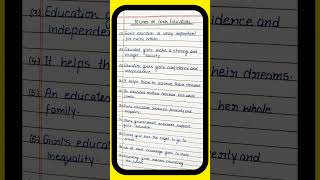 (3) Education g
independen
(4) It helps th
(5) An educate
family.
(6) Girl's educ
inequality
10 Lines on Girls Education
(1) Girls education is very important
for every nation.
(2) Educated girls make a strong and
society
(3) Education gives girls confidence and
independence.
(4) It helps them to achieve their dreams.
(5) An educated mother teaches her whole
family.
(6) Girl's education reduces poverty and
inequality.
(7) Many government schemes support
girls education
(8) Every girl has the right to go to
school.
(9)
(10) Educating girls means educating
the whole
idence and
eir dreams.
her whole
overty and